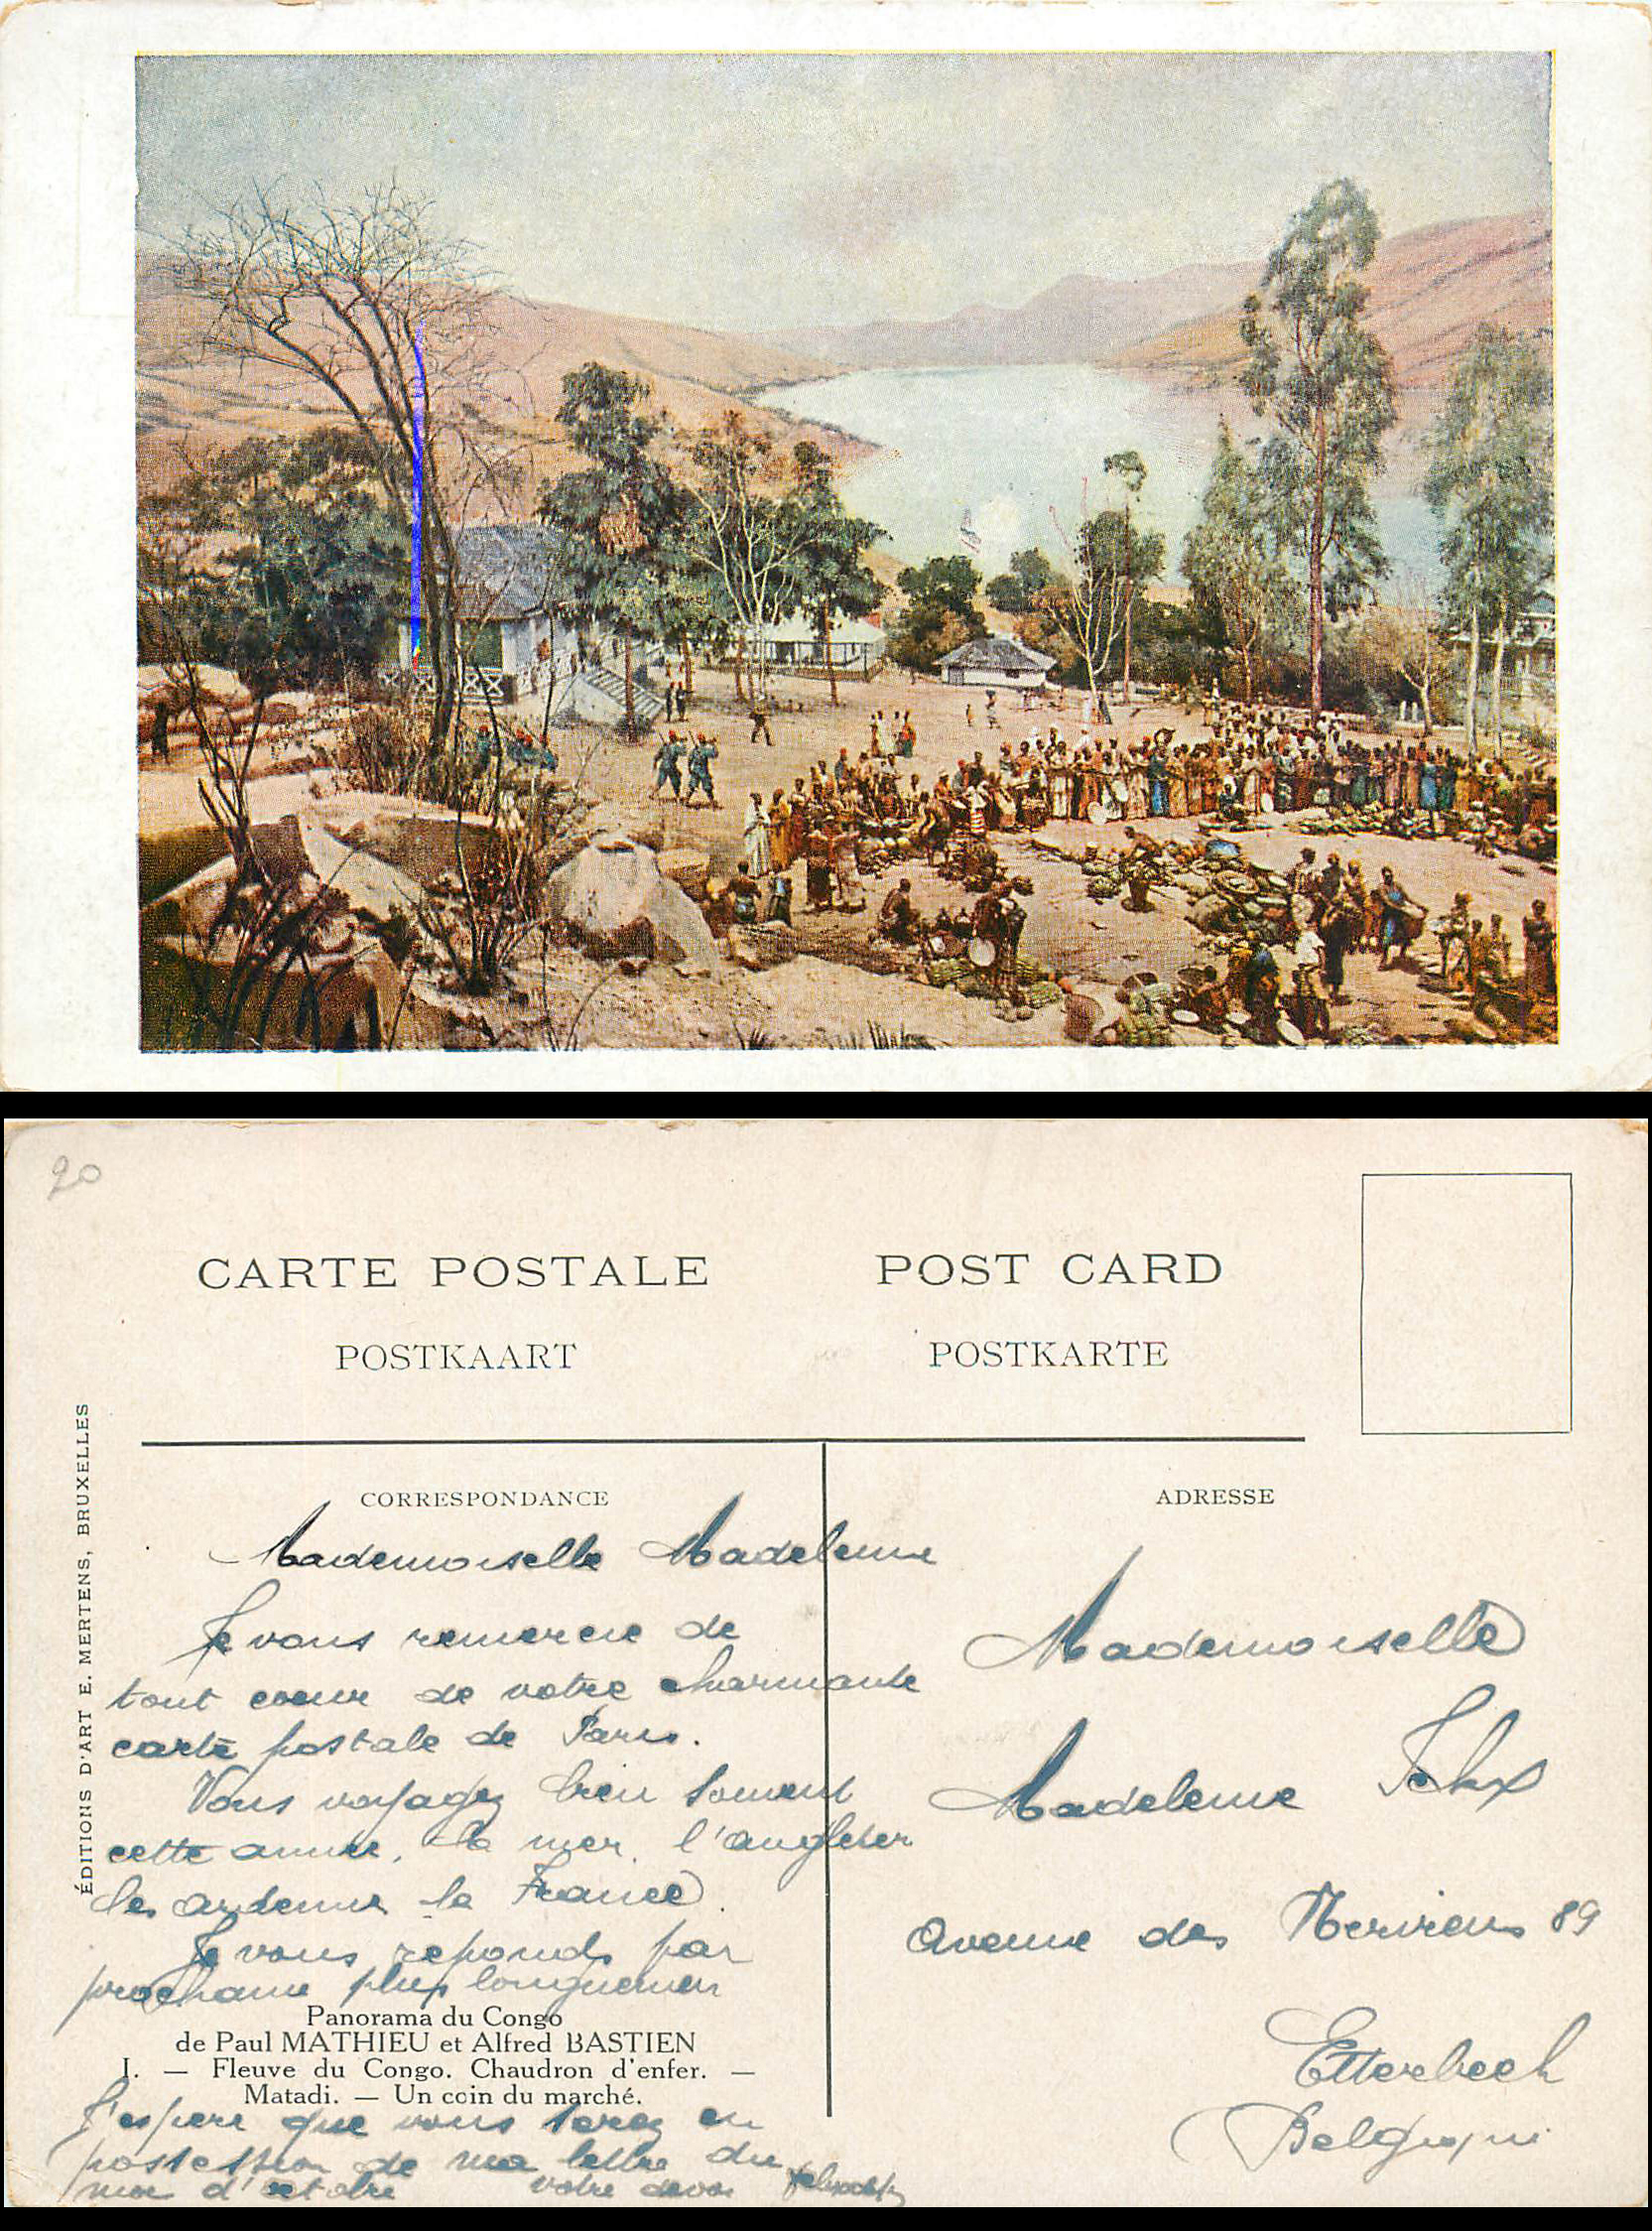 20
CARTE POSTALE
POST CARD
POSTKAART
POSTKARTE
ÉDITIONS D'ART E. MERTENS, BRUXELLES
CORRESPONDANCE
Mademoiselle Madeleine
Je vous remercie de
tout coeur de votre charmante
carte postale de Paris.
Vous voyagez bien souvent
cette annee, la mer, l'angleter
les ardenne la France.
Je vous reponds par
prochaine plus longuemen
Panorama du Congo
de Paul MATHIEU et Alfred BASTIEN
I. — Fleuve du Congo. Chaudron d'enfer. —
Matadi. — Un coin du marché.
J'espere que vous serez en
possession de ma lettre du
moi d'octobre votre
ADRESSE
Mademoiselle
Madeleine
Avenue des Nerviens 89
Etterbeek
Belgique